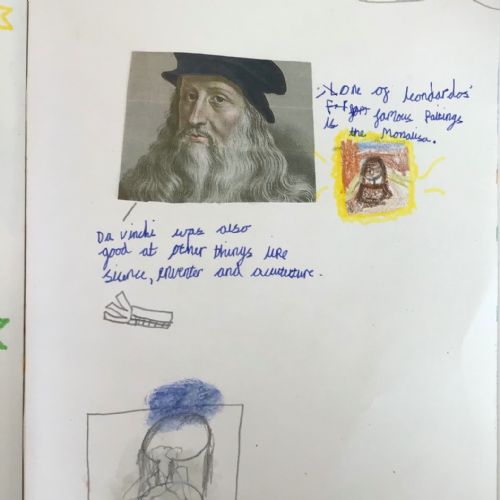 One of leondardos'
famous paitings
is the Monalisa.
Da vinchi was also
good at other things like
sicence, enventer and acututure.